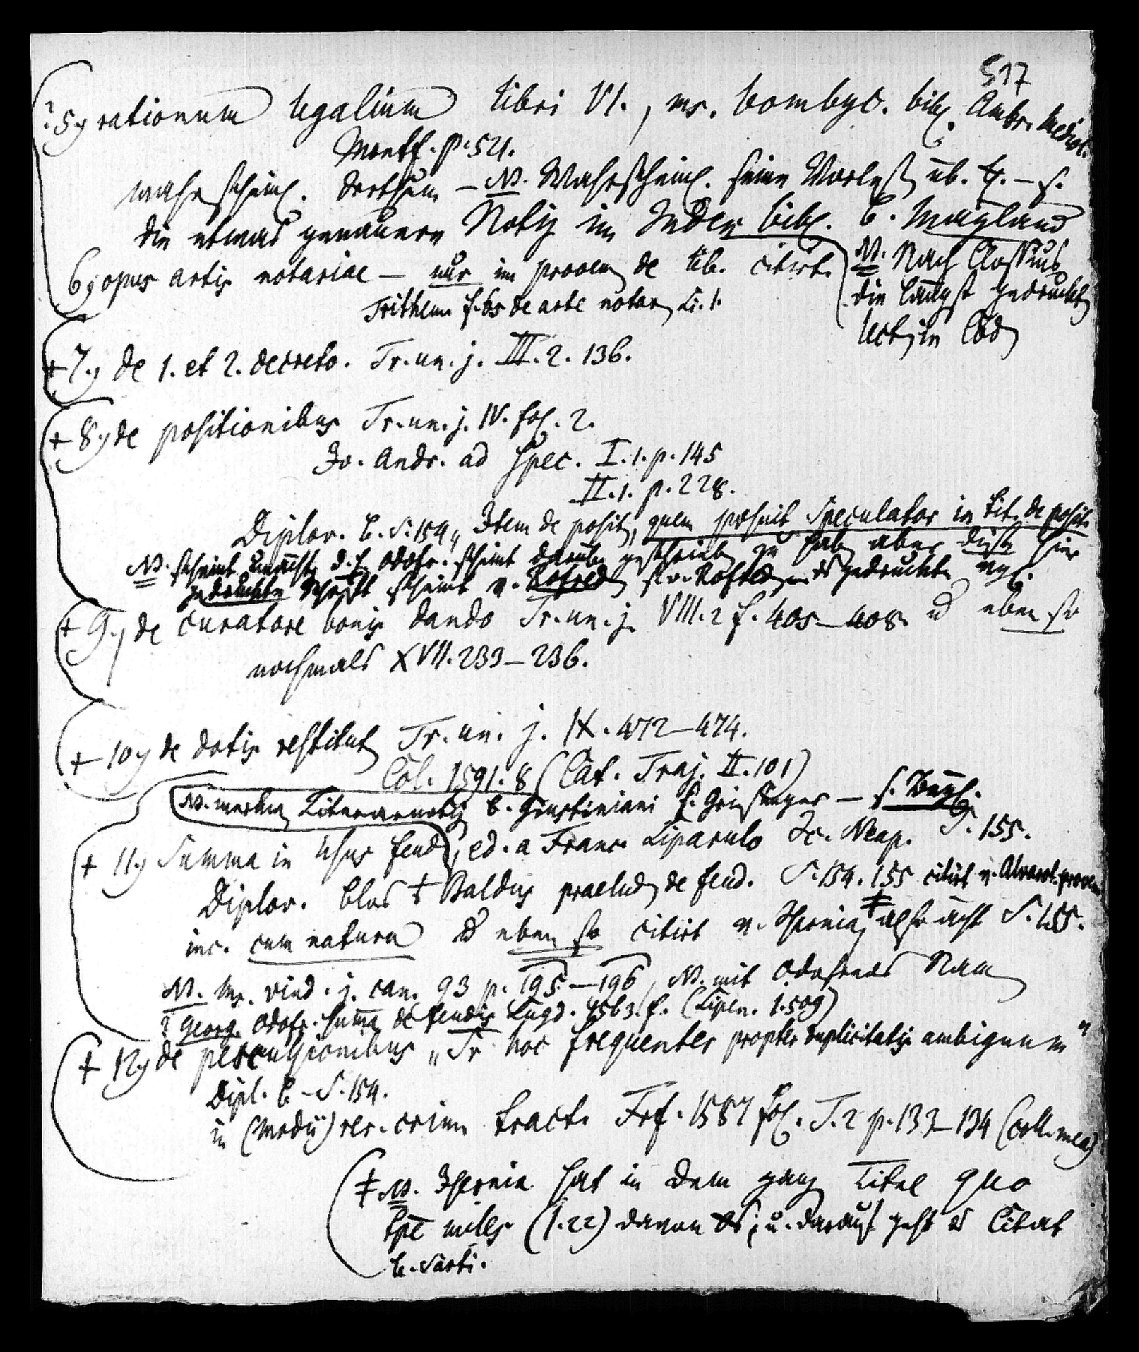 517
? 5, rationum legalium libri VI., ms. bombyc. bibl. Ambr. Mediol.
Montf. p. 521.
wahrscheinl. Irrthum — NB. Wahrscheinl. seine Vorles. üb. — s.
die etwas genauere Notiz im Index bibl. b. Mayland
6, opus artis notariae — nur im prooem de lib. citirt.
NB. Nach Clossius
die längst gedruckte
Lect. in Cod.
Trithem f. 65 de arte notar. Li. 1.
+ 7., de 1. et 2. decreto. Tr. un. j. III. 2. 136.
+ 8, de positionibus Tr. un. j. IV. fol. 2.
Jo. Andr. ad Spec. I. 1. p. 145
II. 1. p. 228.
Diplov. b. S. 154 „Item de posit, quem posuit Speculator in tit. de posit.
NB. scheint unächt, d. h. Odofr. scheint darüber geschrieben zu haben aber diese hier
gedruckte Schrift scheint v. Rofred
+ 9., de curatore bonis dando Tr. un. j. VIII. 2 f. 405—408. und eben so
nochmals XVII. 233—236.
+ 10, de dotis restitut Tr. un. j. IX. 472—474.
Col. 1591. 8 (Cat. Traj. II. 101)
NB. merkw Literarnotiz b. Giustiniani f. — s.
+ 11, Summa in usus feud, ed. a Franc. Liparulo Jc. Neap. S. 155.
Diplov. blos ‡ Baldus praelud. de feud. S. 154. 155 citirt v. Alvarot. prooem
inc. cum natura und eben so citirt v. Isernia, also ächt S. 155.
NB. Ms. vind. j. can. 93 p. 195—196, NB. mit Odofreds Nam
? Georg. Odofr. Summa de feudis Lugd. 1563. f. (Lipen. 1. 509)
+ 12, de percussionibus „Tr hoc frequenter propter duplicitatis ambiguum"
Dipl. b — S. 154.
in (Modii) rer. crim tract. Frf. 1587 fol. T. 2 p. 133—134 (coll. mea)
‡ NB. Isernia hat in dem ganz Titel quo
tpe miles (1. 22) davon u. darauf geht das Citat
b. Sarti.